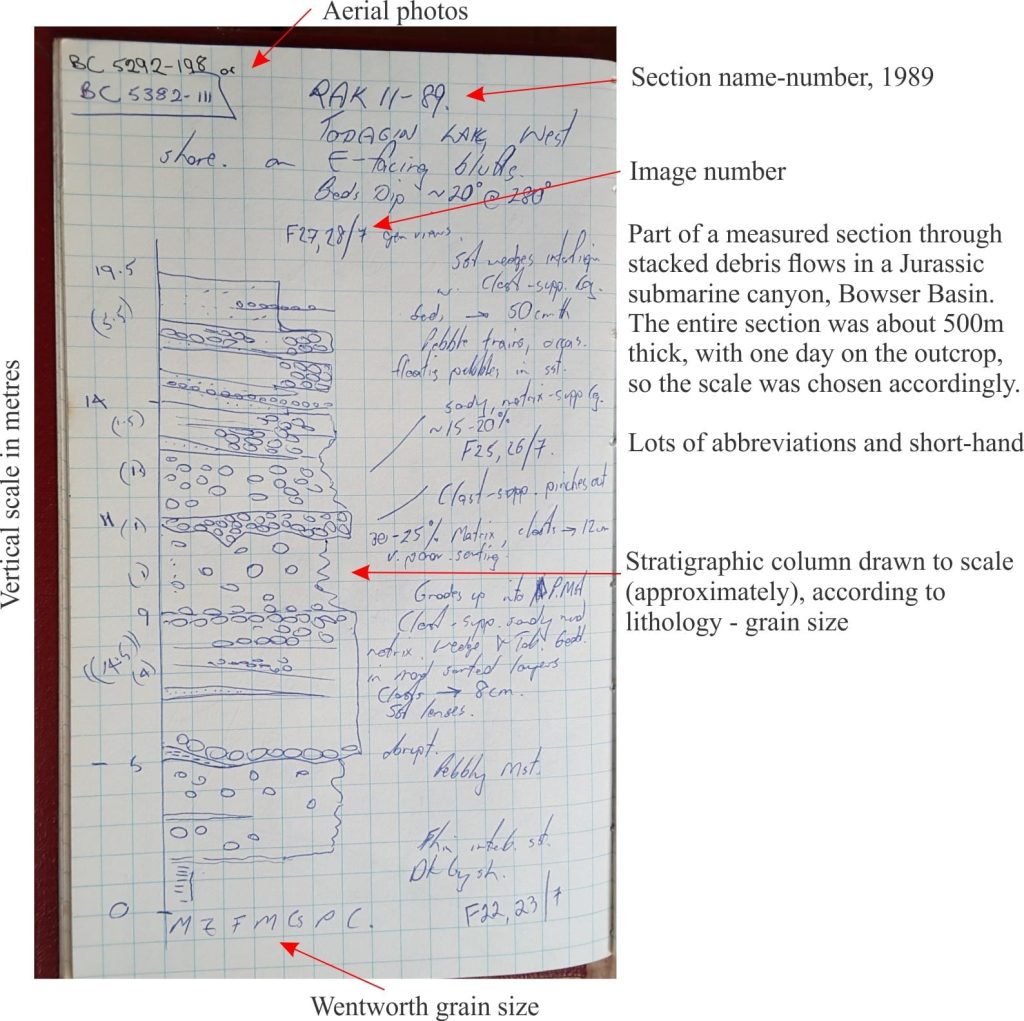 Aerial photos
BC 5292-198 or
BC 5382-111
RAK 11-89.
Section name-number, 1989
TODAGIN LAKE, West
shore. on E-facing bluffs.
Beds Dip ~20° @ 280°
Image number
F27, 28/7 gen views.
Part of a measured section through
stacked debris flows in a Jurassic
submarine canyon, Bowser Basin.
The entire section was about 500m
thick, with one day on the outcrop,
so the scale was chosen accordingly.
Lots of abbreviations and short-hand
Sst wedges
w. Clast-supp. Cg.
beds → 50cm th
Pebble trains, occas.
floatig pebbles in sst.
sady, matrix-supp Cg.
~15-20%
F25, 26/7.
Clast-supp. pinches out
25% Matrix, clasts → 12cm
v. poor sorting.
Stratigraphic column drawn to scale
(approximately), according to
lithology - grain size
Grades up into P.Mst
Clast-supp. sandy mud
matrix. Wedge & Tab. bedd.
in sorted layers
Clasts → 8cm.
Sst lenses.
abrupt.
Pebbly Mst.
Thin interb. sst.
Dk Gy sh.
F22, 23/7
19.5
(5.5)
14
(1.5)
11 (1)
(1)
9
((14.5))
(4)
5
0
M Z F M CS P C.
Vertical scale in metres
Wentworth grain size